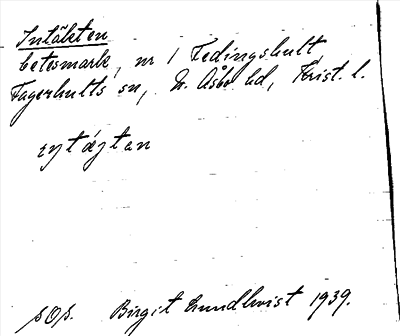 Intäkten
betesmark, nr 1 Fedingshult
Fagerhults sn, N. Åsbo hd, Krist. l.
Birgit Lundkvist 1939.